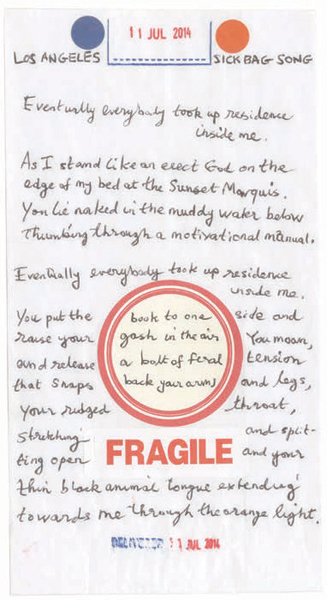 11 JUL 2014
LOS ANGELES SICK BAG SONG
Eventually everybody took up residence
inside me.
As I stand like an erect God on the
edge of my bed at the Sunset Marquis.
You lie naked in the muddy water below
Thumbing through a motivational manual.
Eventually everybody took up residence
inside me.
You put the book to one side and
raise your gash in the air You moan,
and release a bolt of feral tension
that snaps back your arms and legs,
your ridged throat,
stretching and split-
ting open FRAGILE and your
thin black animal tongue extending
towards me through the orange light.
DELIVERED 11 JUL 2014